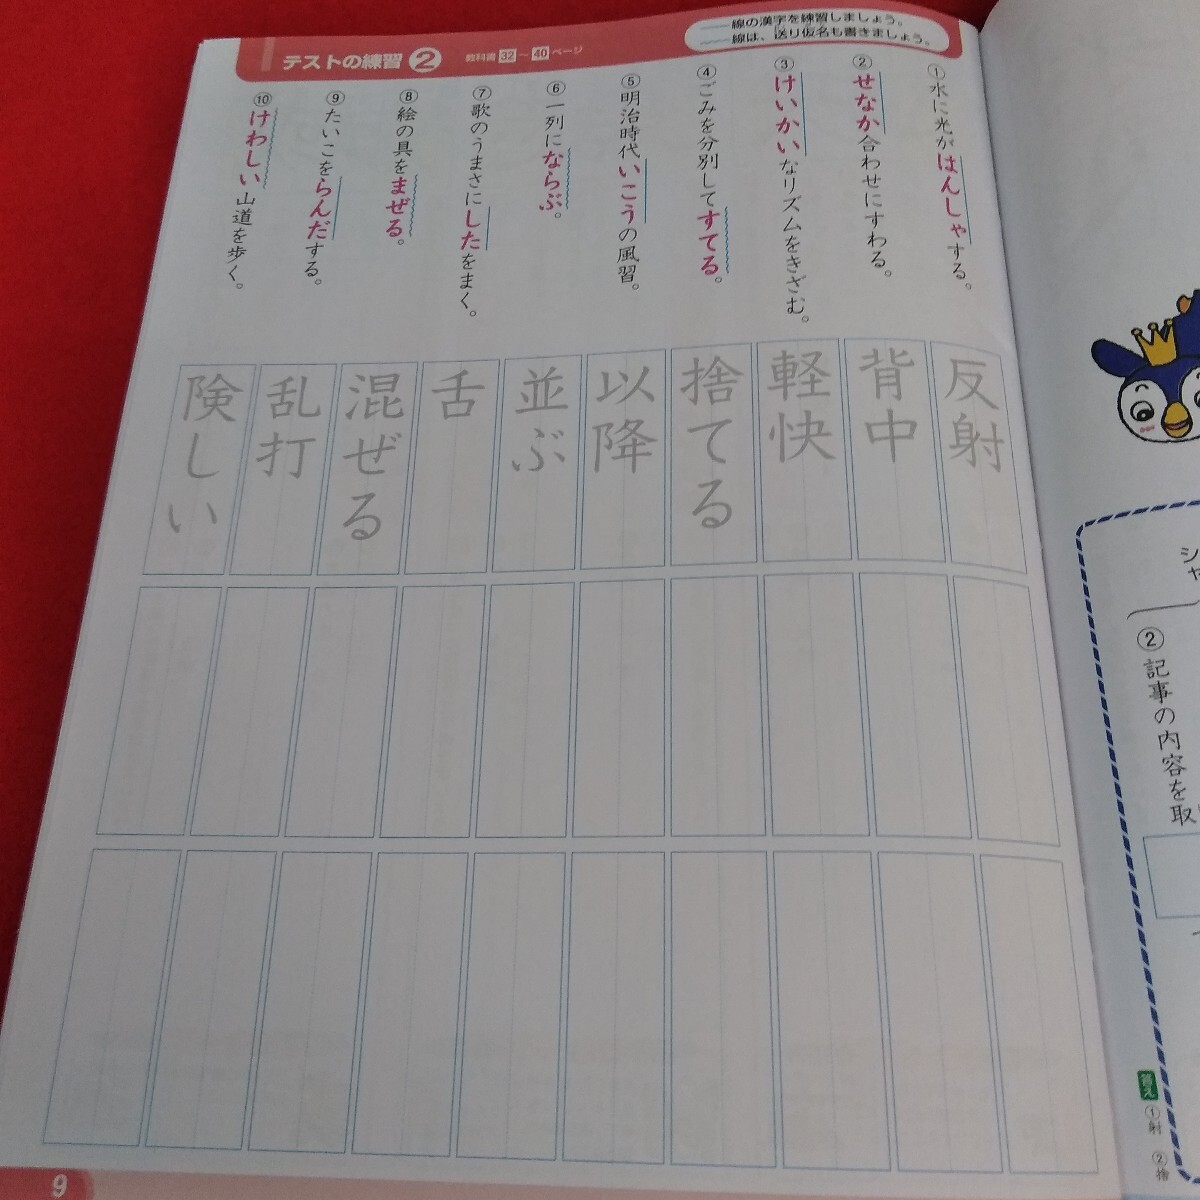 テストの練習2 教科書32~40ページ
――線の漢字を練習しましょう。
――線は、送り仮名も書きましょう。
①水に光がはんしゃする。
②せなか合わせにすわる。
③けいかいなリズムをきざむ。
④ごみを分別してすてる。
⑤明治時代いこうの風習。
⑥一列にならぶ。
⑦歌のうまさにしたをまく。
⑧絵の具をまぜる。
⑨たいこをらんだする。
⑩けわしい山道を歩く。
反射
背中
軽快
捨てる
以降
並ぶ
舌
混ぜる
乱打
険しい
9
②記事の内容を取
答え ①射 ②捨